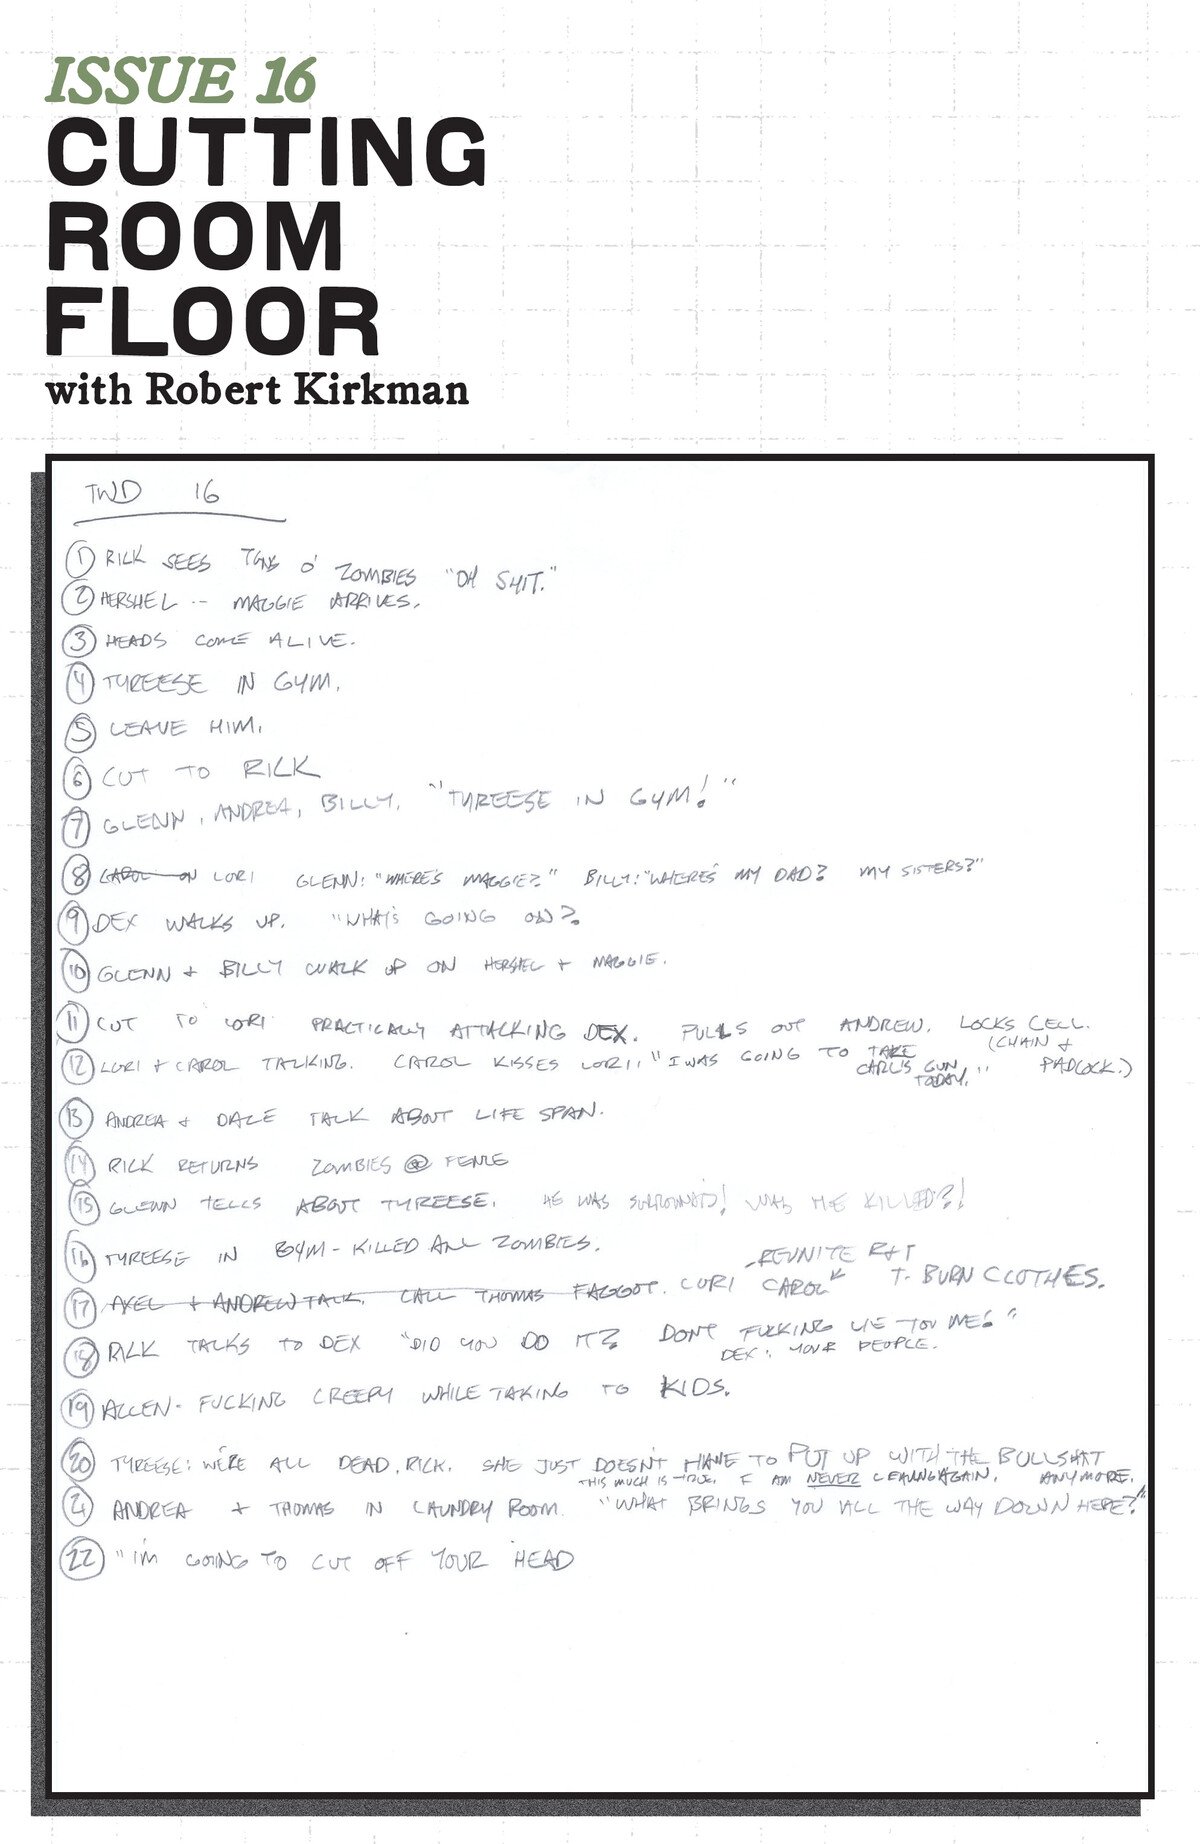 ISSUE 16
CUTTING
ROOM
FLOOR
with Robert Kirkman
TWD 16
1 RICK SEES TONS O' ZOMBIES "OH SHIT."
2 HERSHEL -- MAGGIE ARRIVES.
3 HEADS COME ALIVE.
4 TYREESE IN GYM.
5 LEAVE HIM.
6 CUT TO RICK
7 GLENN, ANDREA, BILLY. "TYREESE IN GYM!"
8 CAROL ON LORI GLENN: "WHERE'S MAGGIE?" BILLY: "WHERE'S MY DAD? MY SISTERS?"
9 DEX WALKS UP. "WHAT'S GOING ON?
10 GLENN + BILLY WALK UP ON HERSHEL + MAGGIE.
11 CUT TO LORI PRACTICALLY ATTACKING DEX. PULLS OUT ANDREW. LOCKS CELL.
(CHAIN + PADLOCK.)
12 LORI + CAROL TALKING. CAROL KISSES LORI: "I WAS GOING TO TAKE
CARL'S GUN
TODAY."
13 ANDREA + DALE TALK ABOUT LIFE SPAN.
14 RICK RETURNS ZOMBIES @ FENCE
15 GLENN TELLS ABOUT TYREESE. HE WAS SURROUNDED! WAS HE KILLED?!
16 TYREESE IN GYM - KILLED ALL ZOMBIES.
REUNITE R+T
17 AXEL + ANDREW TALK. CALL THOMAS FAGGOT. LORI CAROL T- BURN CLOTHES.
18 RICK TALKS TO DEX "DID YOU DO IT? DON'T FUCKING LIE TO ME!"
DEX: YOUR PEOPLE.
19 ALLEN - FUCKING CREEPY WHILE TAKING TO KIDS.
20 TYREESE: WE'RE ALL DEAD, RICK. SHE JUST DOESN'T HAVE TO PUT UP WITH THE BULLSHIT
ANYMORE.
THIS MUCH IS TRUE. I AM NEVER LEAVING AGAIN.
21 ANDREA + THOMAS IN LAUNDRY ROOM. "WHAT BRINGS YOU ALL THE WAY DOWN HERE?"
22 "I'M GOING TO CUT OFF YOUR HEAD